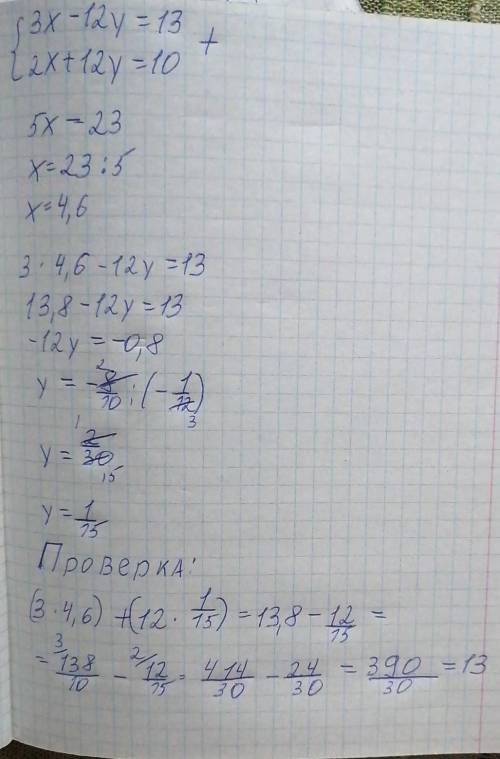 {3x-12y=13
{2x+12y=10 +
5x-23
x=23:5
x=4,6
3·4,6-12y=13
13,8-12y=13
-12y=-0,8
y=-8/10:(-1/12) 2 3
y=2/30 1 15
y=1/15
Проверка:
(3·4,6)+(12·1/15)=13,8-12/15=
=3/138/10-2/12/15=414/30-24/30=390/30=13